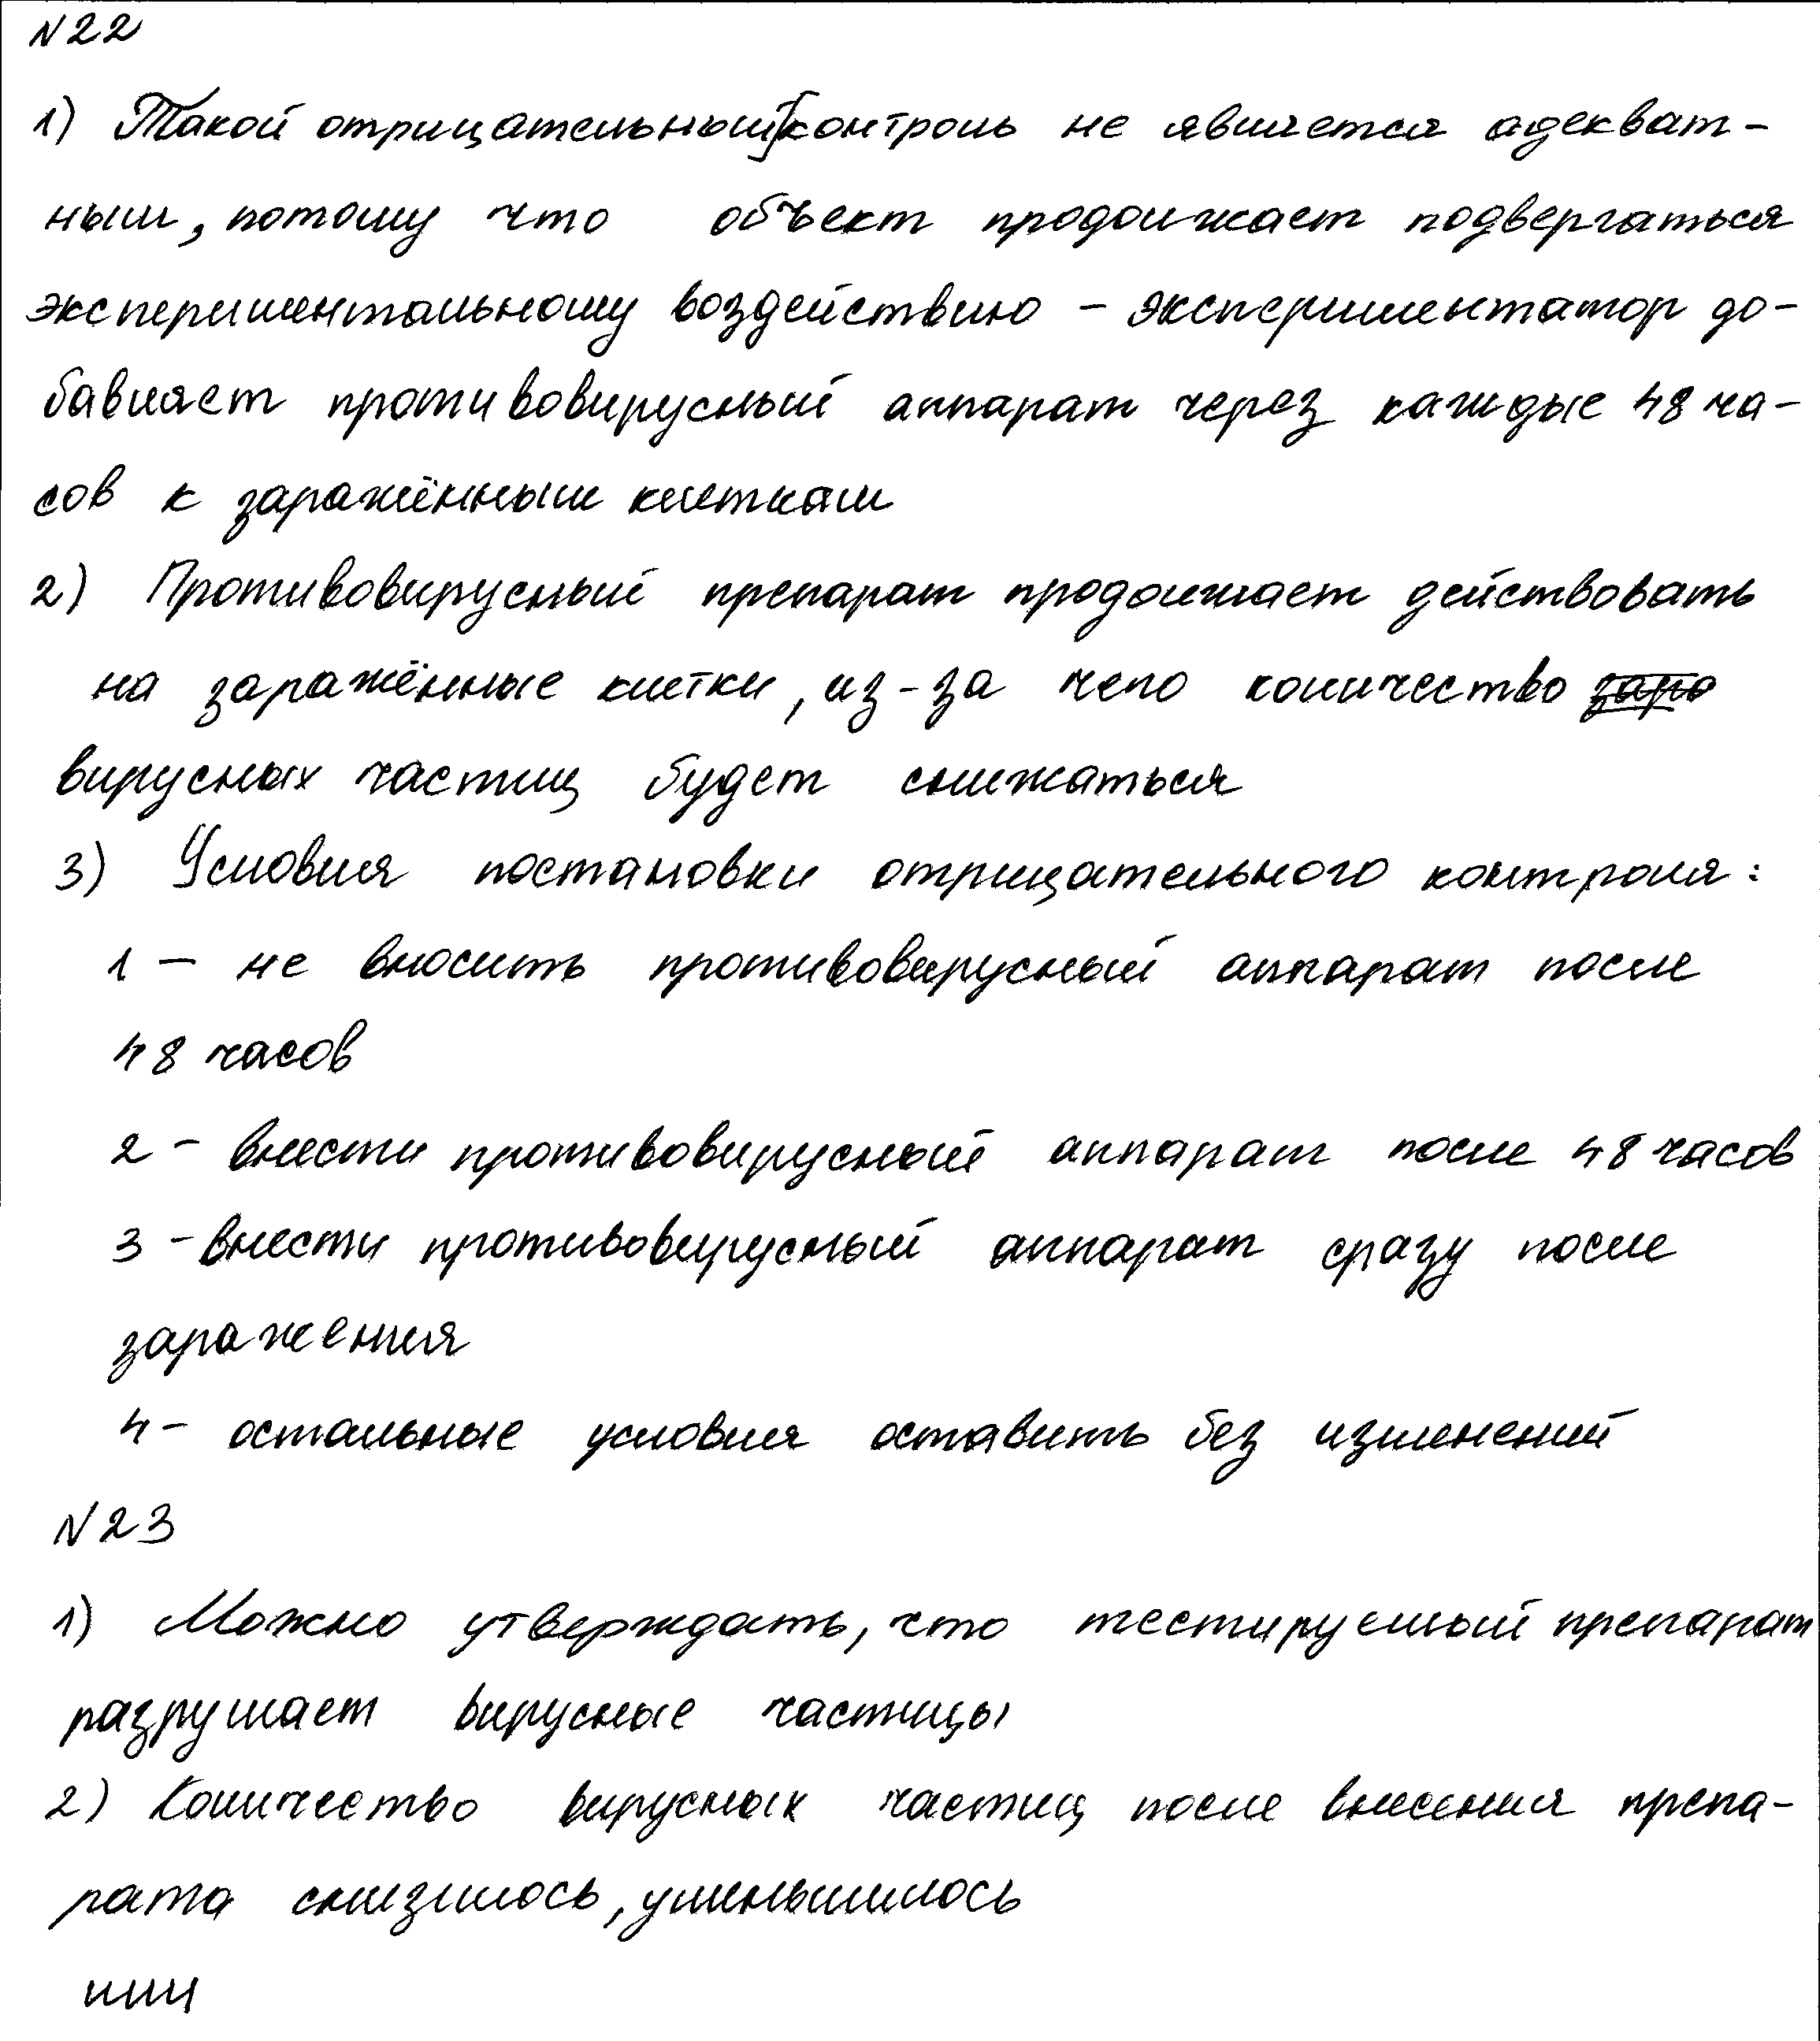 N22
1) Такой отрицательный контроль не является адекват-
ным, потому что объект продолжает подвергаться
экспериментальному воздействию - экспериментатор до-
бавляет противовирусный аппарат через каждые 48 ча-
сов к заражённым клеткам
2) Противовирусный препарат продолжает действовать
на заражённые клетки, из-за чего количество
вирусных частиц будет снижаться
3) Условия постановки отрицательного контроля:
1 - не вносить противовирусный аппарат после
48 часов
2 - внести противовирусный аппарат после 48 часов
3 - внести противовирусный аппарат сразу после
заражения
4 - остальные условия оставить без изменений
N23
1) Можно утверждать, что тестируемый препарат
разрушает вирусные частицы
2) Количество вирусных частиц после внесения препа-
рата снизилось, уменьшилось